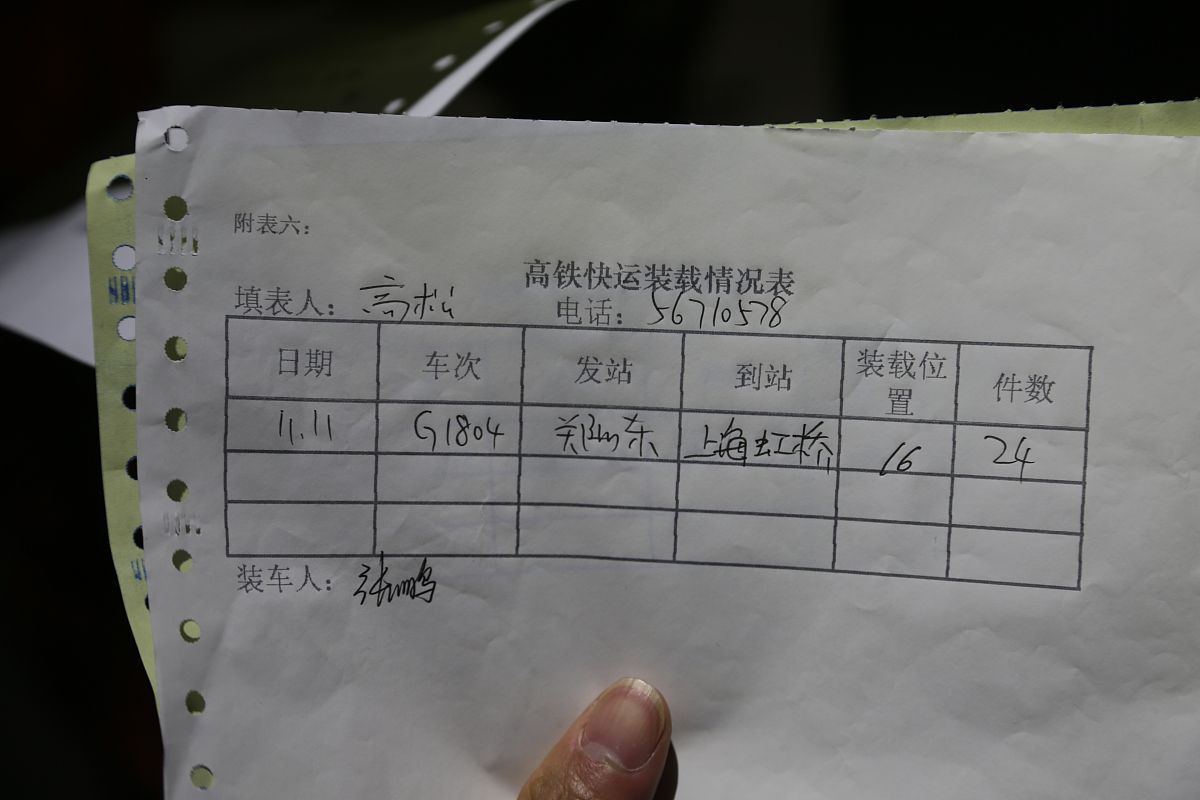 附表六：
高铁快运装载情况表
填表人：高松 电话：56710578
日期 车次 发站 到站 装载位置 件数
11.11 G1804 郑州东 上海虹桥 16 24
装车人：张鹏